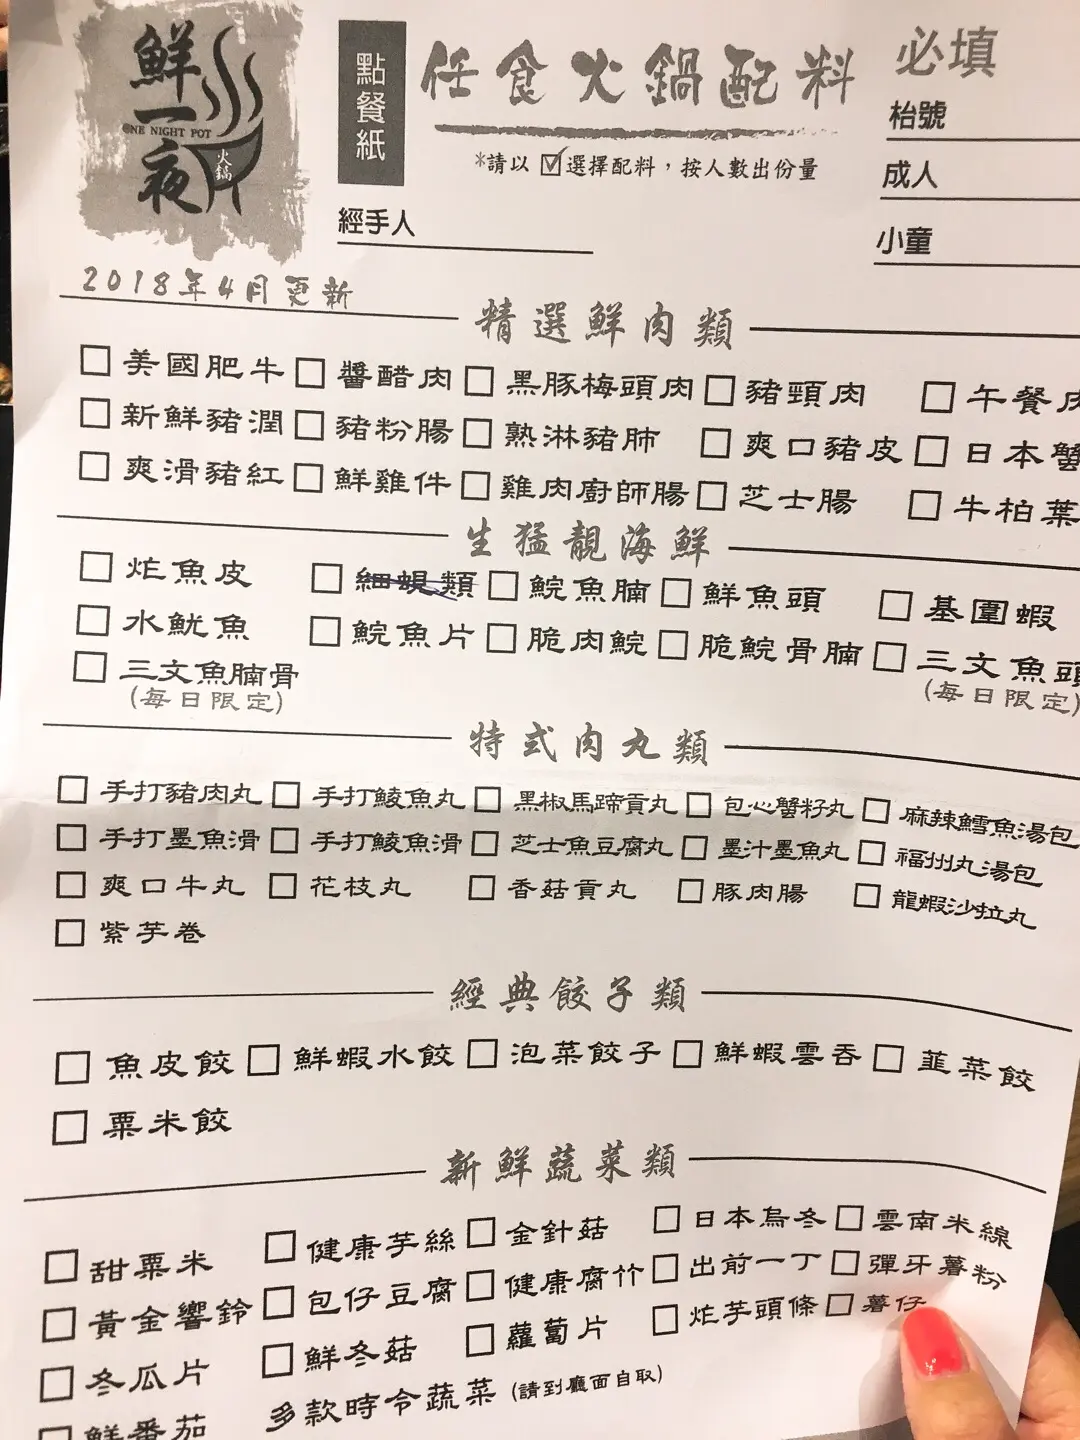 鮮一夜
ONE NIGHT POT
火鍋
點餐紙
任食火鍋配料
*請以☑選擇配料，按人數出份量
經手人
必填
枱號
成人
小童
2018年4月更新
精選鮮肉類
□ 美國肥牛 □ 醬醋肉 □ 黑豚梅頭肉 □ 豬頸肉 □ 午餐肉
□ 新鮮豬潤 □ 豬粉腸 □ 熟淋豬肺 □ 爽口豬皮 □ 日本蟹
□ 爽滑豬紅 □ 鮮雞件 □ 雞肉廚師腸 □ 芝士腸 □ 牛柏葉
生猛靚海鮮
□ 炸魚皮 □ 細蜆類 □ 鯇魚腩 □ 鮮魚頭 □ 基圍蝦
□ 水魷魚 □ 鯇魚片 □ 脆肉鯇 □ 脆鯇骨腩 □ 三文魚頭
□ 三文魚腩骨
(每日限定) (每日限定)
特式肉丸類
□ 手打豬肉丸 □ 手打鯪魚丸 □ 黑椒馬蹄貢丸 □ 包心蟹籽丸 □ 麻辣鱈魚湯包
□ 手打墨魚滑 □ 手打鯪魚滑 □ 芝士魚豆腐丸 □ 墨汁墨魚丸 □ 福州丸湯包
□ 爽口牛丸 □ 花枝丸 □ 香菇貢丸 □ 豚肉腸 □ 龍蝦沙拉丸
□ 紫芋卷
經典餃子類
□ 魚皮餃 □ 鮮蝦水餃 □ 泡菜餃子 □ 鮮蝦雲吞 □ 韮菜餃
□ 粟米餃
新鮮蔬菜類
□ 甜粟米 □ 健康芋絲 □ 金針菇 □ 日本烏冬 □ 雲南米線
□ 黃金響鈴 □ 包仔豆腐 □ 健康腐竹 □ 出前一丁 □ 彈牙薯粉
□ 冬瓜片 □ 鮮冬菇 □ 蘿蔔片 □ 炸芋頭條 □ 薯仔
□ 鮮番茄 多款時令蔬菜 (請到廳面自取)